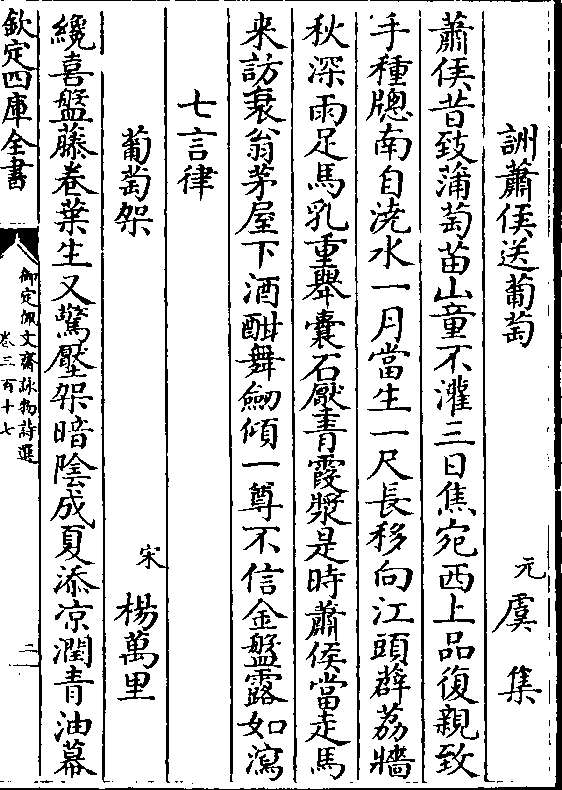 詶蕭侯送葡萄　元虞集
蕭侯昔致蒲萄苗山童不灌三日焦宛西上品復親致
手種牕南自澆水一月當生一尺長移向江頭薜荔牆
秋深雨足馬乳重舉囊石壓青霞漿是時蕭侯當走馬
来訪衰翁茅屋下酒酣舞劒傾一尊不信金盤露如瀉
七言律
葡萄架　宋楊萬里
纔喜盤藤卷葉生又驚壓架暗陰成夏添凉潤青油幕
欽定四庫全書
御定佩文齋詠物詩選
卷三百十七
二